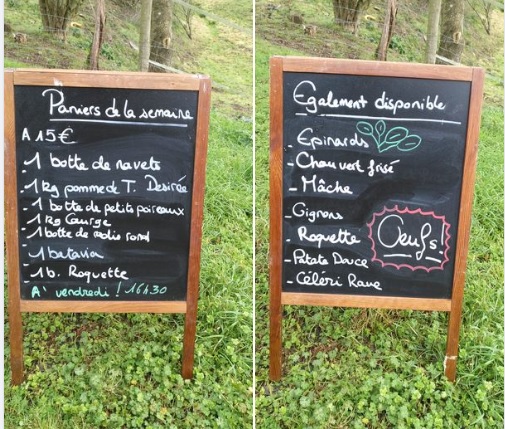 Paniers de la semaine
A 15€
- 1 botte de navets
- 1 kg pomme de T. Desirée
- 1 botte de petits poireaux
- 1 kg Courge
- 1 botte de radis rond
- 1 batavia
- 1 b. Roquette
A vendredi ! 16h30
Egalement disponible
- Epinards
- Chou vert frisé
- Mâche
- Oignons
- Roquette
- Patate Douce
- Céléri Rave
Oeufs!